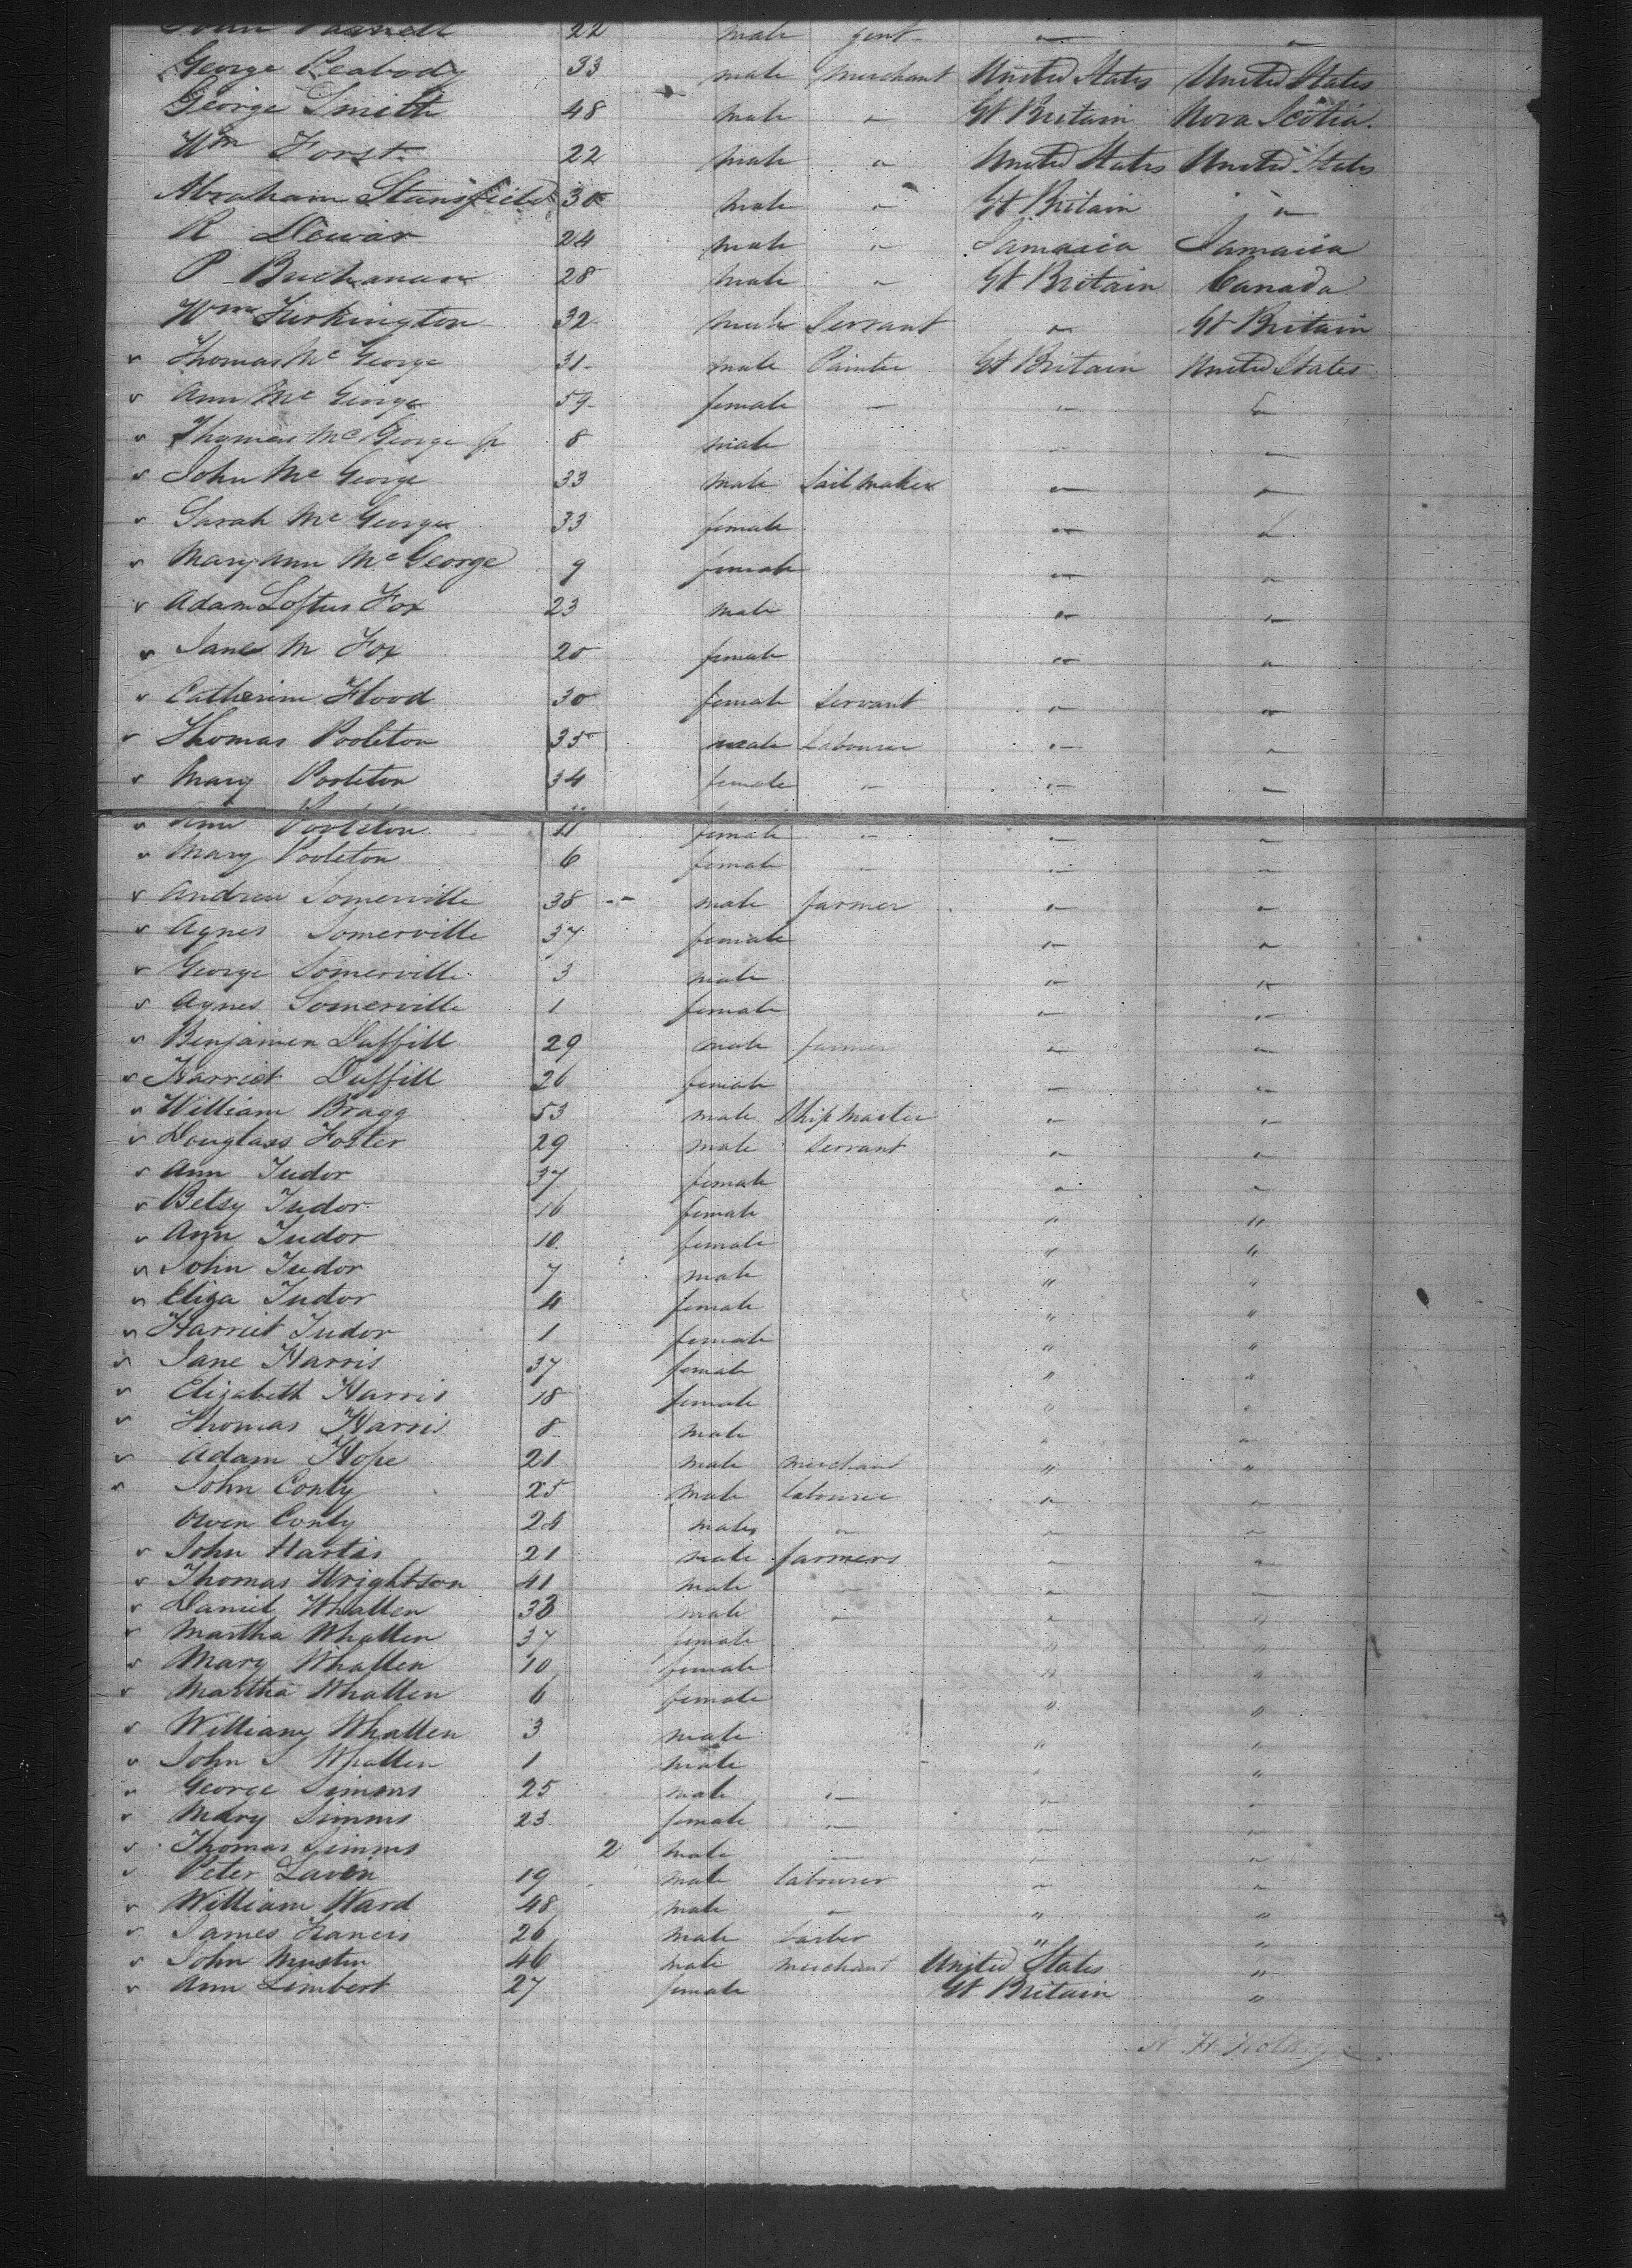 John Parnell 22 male gent " "
George Peabody 33 male merchant United States United States
George Smith 48 male " Gt Britain Nova Scotia
Wm Forst 22 male " United States United States
Abraham Stansfield 30 male " Gt Britain "
R Dewar 24 male " Jamaica Jamaica
P Buchanan 28 male " Gt Britain Canada
Wm Kirkington 32 male Servant " Gt Britain
Thomas Mc George 31 male Painter Gt Britain United States
Ann Mc George 59 female " " "
Thomas Mc George jr 8 male " "
John Mc George 33 male Sailmaker " "
Sarah Mc George 33 female " "
Mary Ann Mc George 9 female " "
Adam Loftus Fox 23 male " "
Jane M Fox 20 female " "
Catherine Flood 30 female Servant " "
Thomas Pooleton 35 male Labourer " "
Mary Pooleton 34 female " " "
Ann Pooleton 11 female " " "
Mary Pooleton 6 female " " "
Andrew Somerville 38 male farmer " "
Agnes Somerville 37 female " "
George Somerville 3 male " "
Agnes Somerville 1 female " "
Benjamin Duffill 29 male farmer " "
Harriet Duffill 26 female " "
William Bragg 53 male Ship master " "
Douglass Foster 29 male Servant " "
Ann Tudor 37 female " "
Betsy Tudor 16 female " "
Ann Tudor 10 female " "
John Tudor 7 male " "
Eliza Tudor 4 female " "
Harriet Tudor 1 female " "
Jane Harris 37 female " "
Elizabeth Harris 18 female " "
Thomas Harris 8 male " "
Adam Hope 21 male merchant " "
John Conly 25 male labourer " "
Owen Conly 24 male " " "
John 21 male farmers " "
Thomas Wrightson 41 male " " "
Daniel Whallen 33 male " " "
Martha Whallen 37 female " "
Mary Whallen 10 female " "
Martha Whallen 6 female " "
William Whallen 3 male " "
John S Whallen 1 male " "
George Simms 25 male " " "
Mary Simms 23 female " " "
Thomas Simms 2 male " " "
Peter Lavin 19 male labourer " "
William Ward 48 male " " "
James Francis 26 male barber " "
John Mustin 46 male merchant United States "
Ann Limbert 27 female Gt Britain "